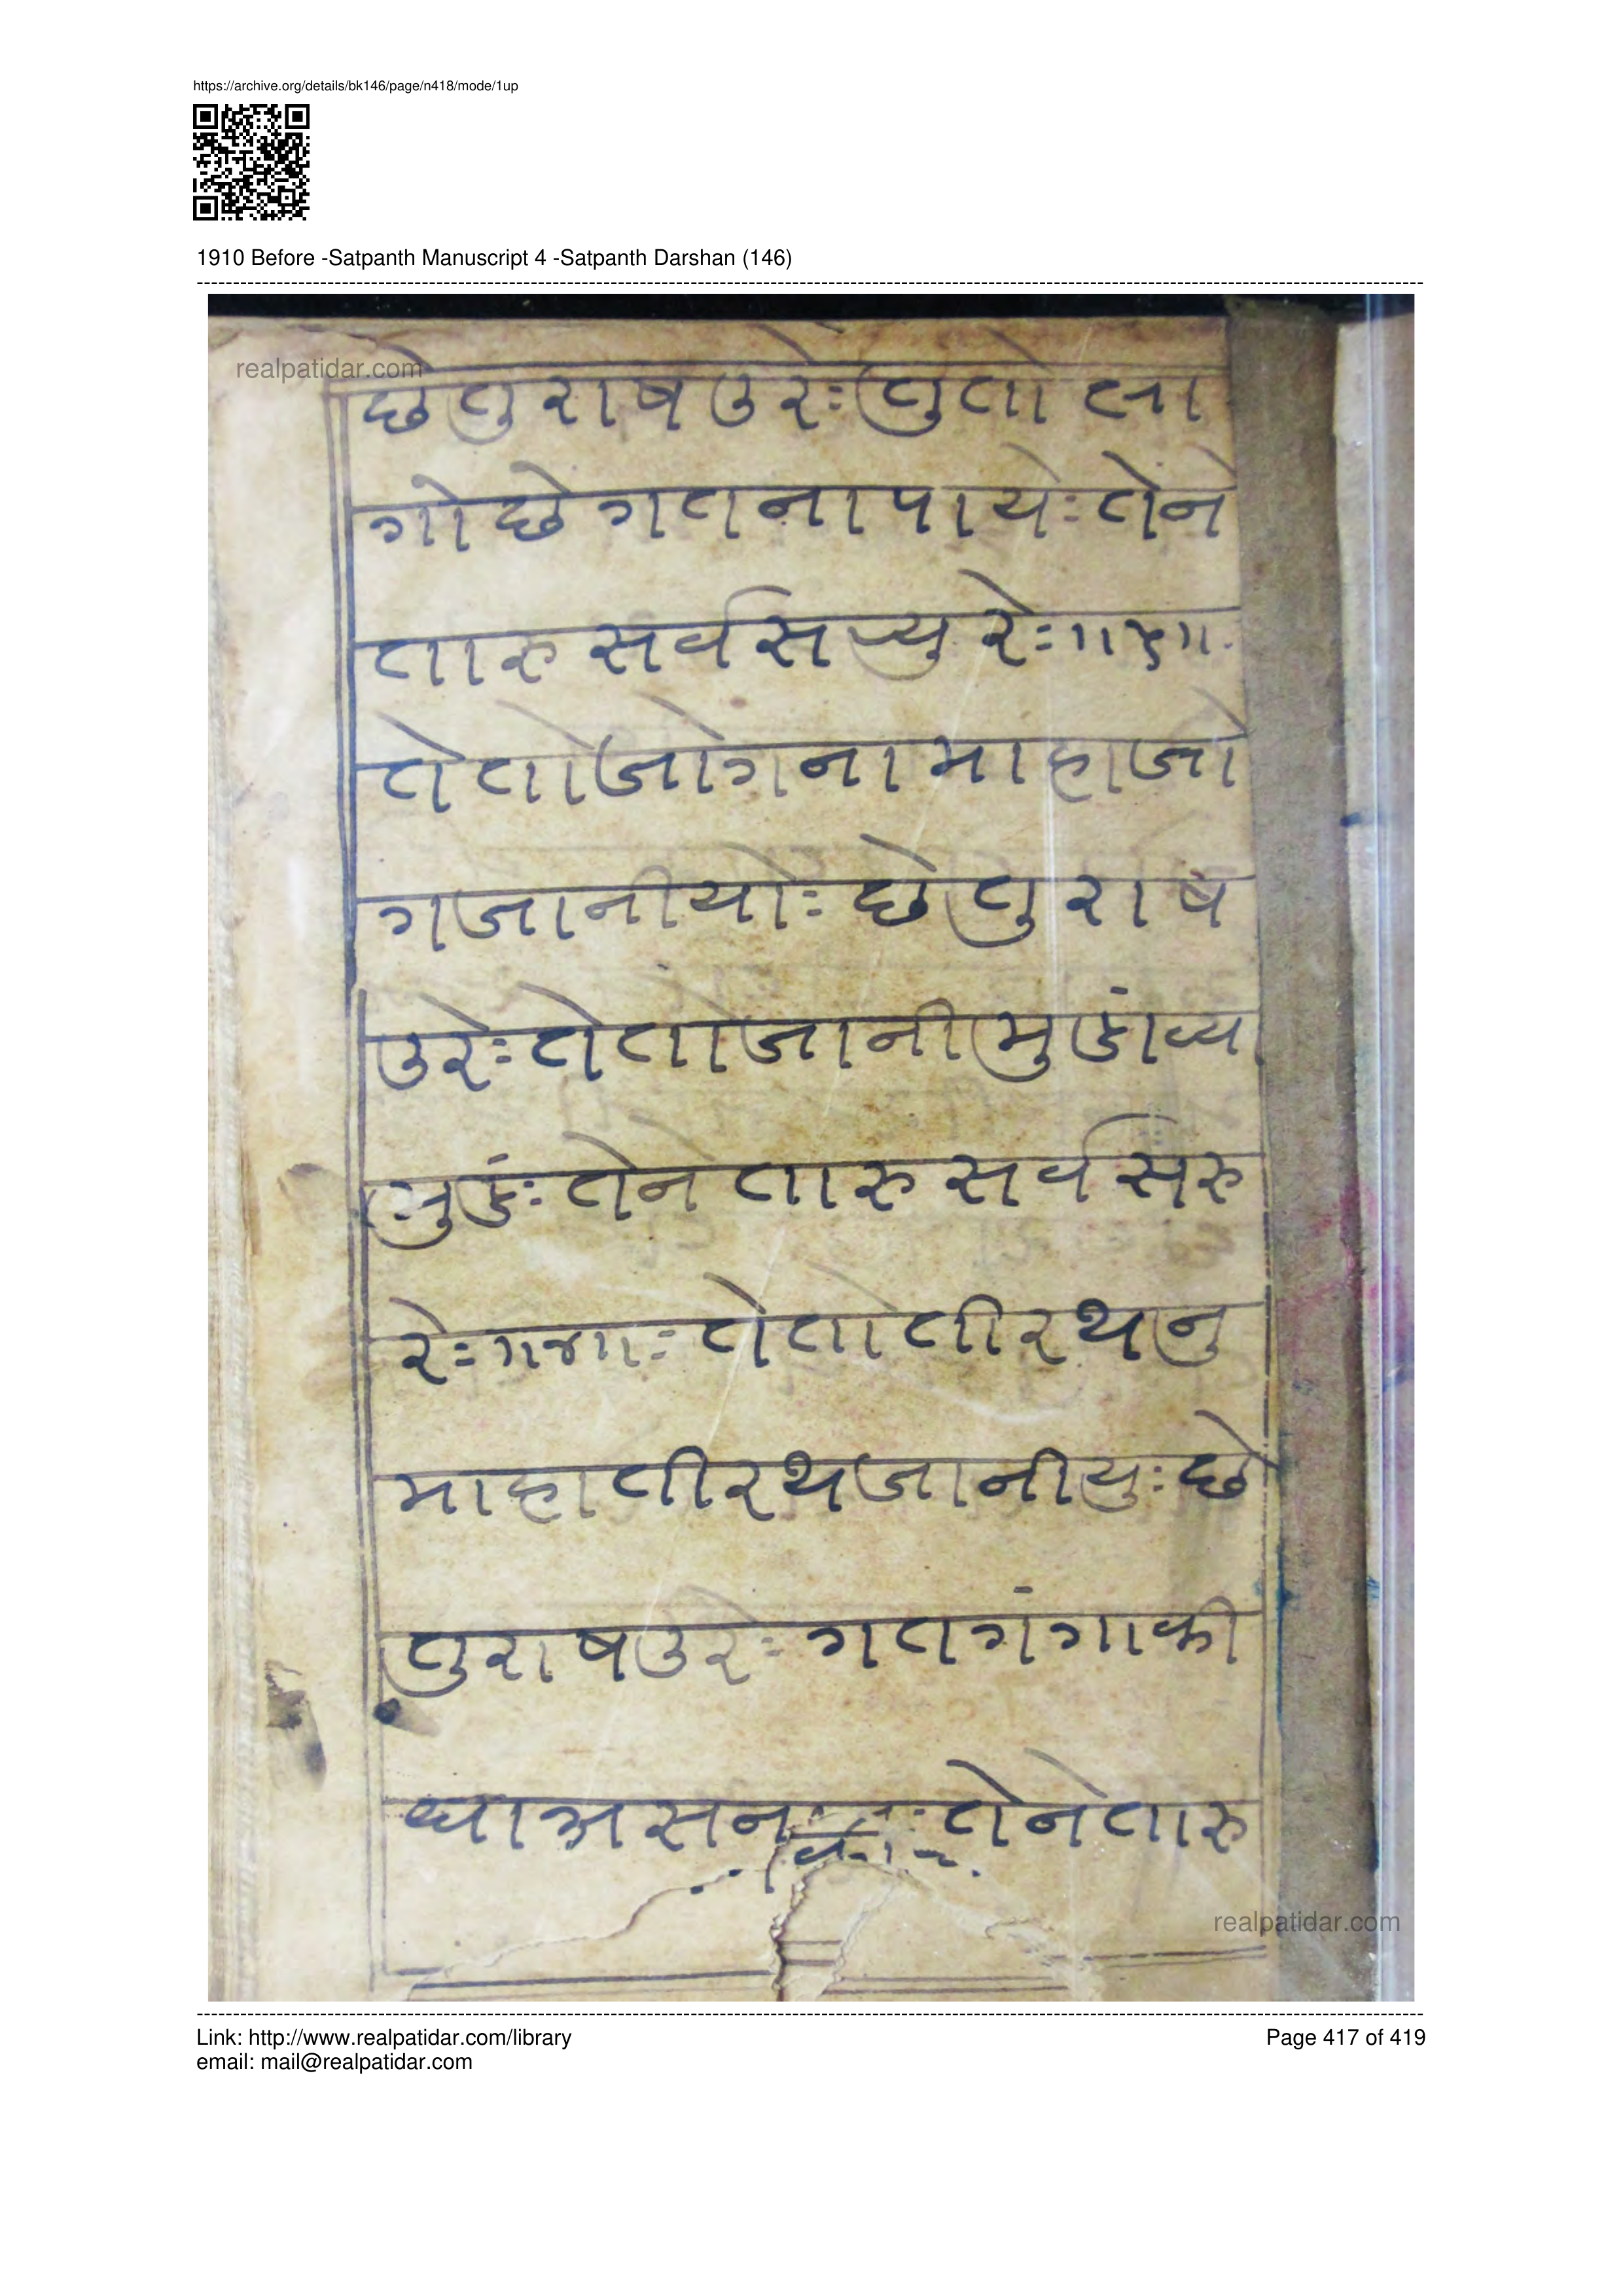 https://archive.org/details/bk146/page/n418/mode/1up
1910 Before -Satpanth Manuscript 4 -Satpanth Darshan (146)
realpatidar.com
छे तु राष उरेः तु तो ला
गो छे गत ना पायेः तेने
तारु सर्व स रेः
ते तो जोगना माहाजो
ग जानीयोः छे तु राष
उरेः ते तो जानी मु
तेने तारु सर्व सरु
रेः ॥४॥ः ते तो तीरथनु
माहा तीरथ जानीयुः छे
तु राष उरेः गत गंगा की
धा असन तेने तारु
realpatidar.com
Link: http://www.realpatidar.com/library
Page 417 of 419
email: mail@realpatidar.com